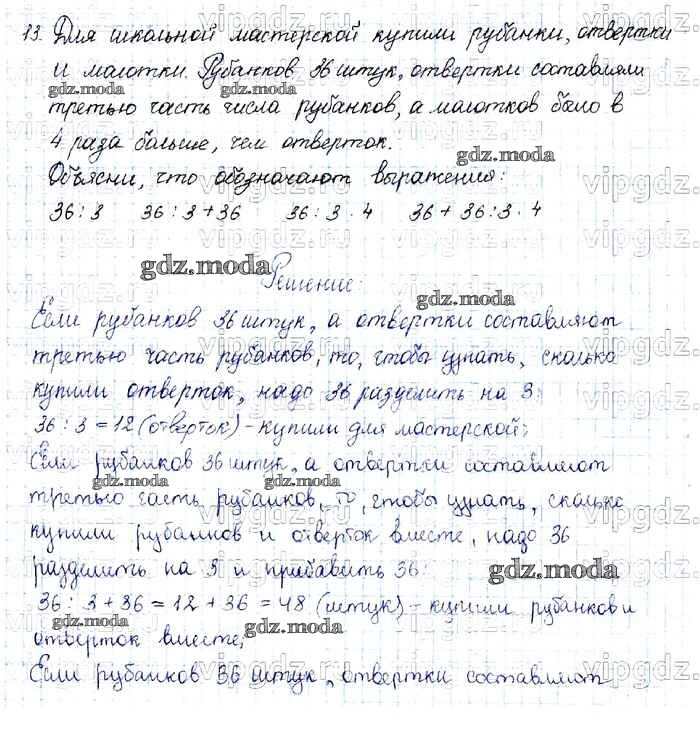 13. Для школьной мастерской купили рубанки, отвертки
и молотки. Рубанков 36 штук, отвертки составляли
третью часть числа рубанков, а молотков было в
4 раза больше, чем отверток.
Объясни, что обозначают выражения:
36 : 3 36 : 3 + 36 36 : 3 · 4 36 + 36 : 3 · 4
Решение:
Если рубанков 36 штук, а отвертки составляют
третью часть рубанков, то, чтобы узнать, сколько
купили отверток, надо 36 разделить на 3:
36 : 3 = 12 (отверток) - купили для мастерской;
Если рубанков 36 штук, а отвертки составляют
третью часть рубанков, то, чтобы узнать, сколько
купили рубанков и отверток вместе, надо 36
разделить на 3 и прибавить 36:
36 : 3 + 36 = 12 + 36 = 48 (штук) - купили рубанков и
отверток вместе;
Если рубанков 36 штук, отвертки составляют
gdz.moda
gdz.moda
gdz.moda
gdz.moda
gdz.moda
gdz.moda
gdz.moda
gdz.moda
gdz.moda
gdz.moda
gdz.moda
vipgdz